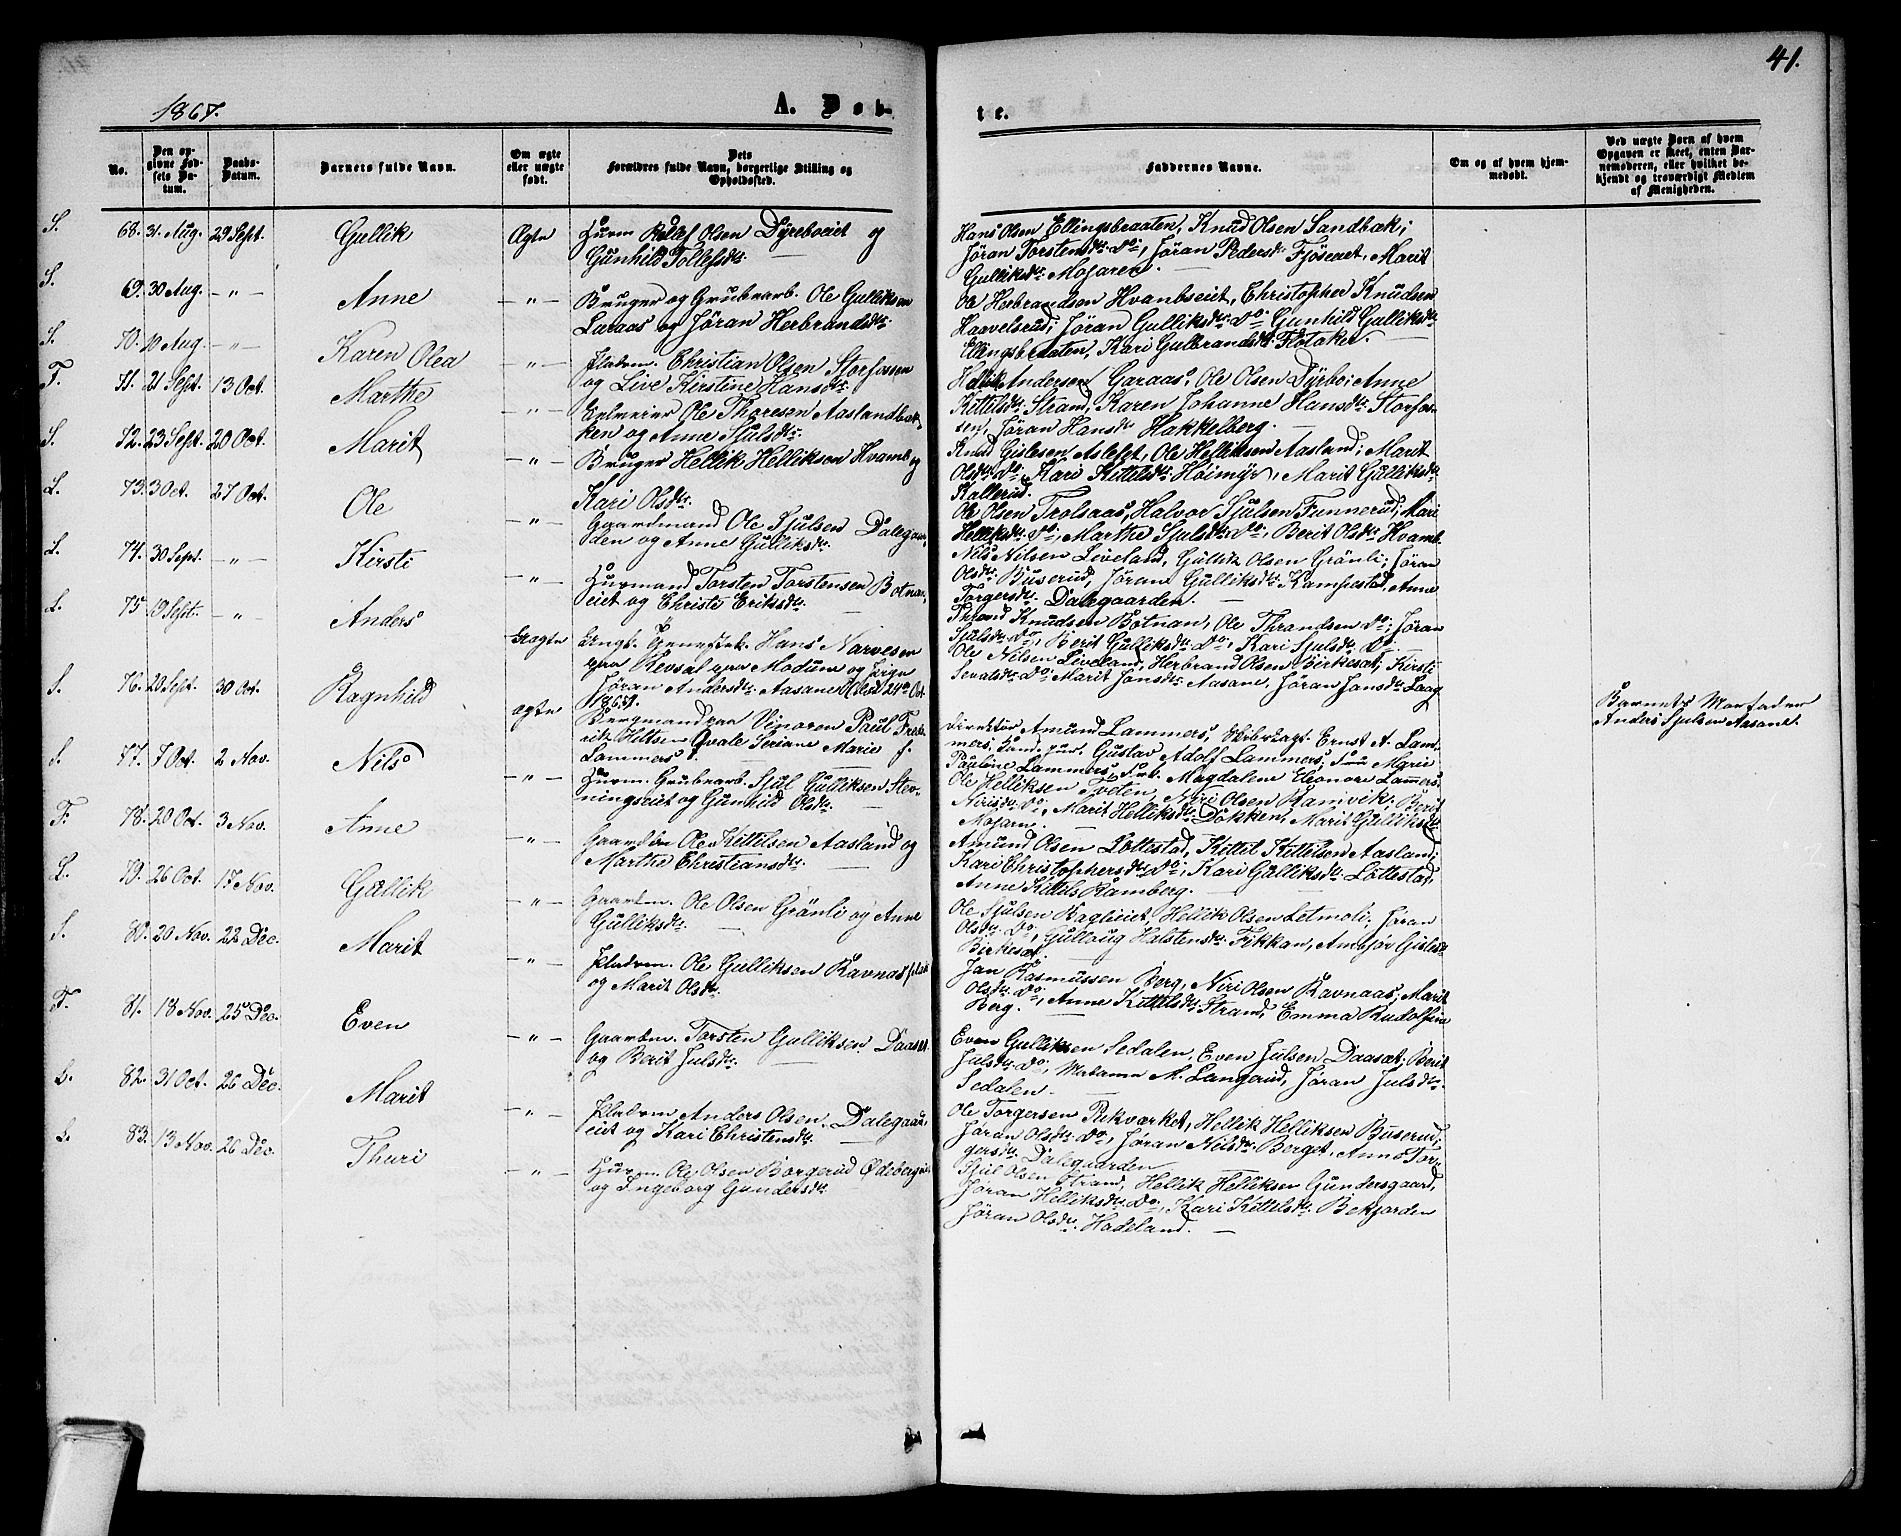 41.
1867.
A. Døb-
te.
No.
Den op-
givne Fød-
sels Da-
tum.
Daabs-
Datum.
Barnets fulde Navn.
Om ægte
eller uægte
født.
Dets
Forældres fulde Navn, borgerlige Stilling og
Opholdssted.
Faddernes Navne.
Om og af hvem hjem-
medøbt.
Ved uægte Børn af hvem
Opgaven er skeet, enten Bar-
nemoderen, eller hvilket be-
kjendt og troværdigt Medlem
af Menigheden.
S. 68. 31. Aug. 29 Sept. Gullik Ægte Huusm Olsen Dyreboeiet og
Gunhild Tollefsdtr.
Hans Olsen Ellingsbraaten, Knud Olsen Sandbæk;
Jøran Torstensdtr. do; Jøran Pedersd. Fjøseiet, Marit
Gulliksdtr. Mogaren.
S. 69. 30 Aug. -"- Anne -"- Bruger og Grubearb. Ole Gulliksen
Laraas og Jøran Herbrandsdtr.
Ole Herbrandsen Hvambseiet, Christopher Knudsen
Haavelsrud; Jøran Gulliksdtr. do. Gunhild Gulliksdtr.
Ellingsbraaten, Kari Gulbrandsdtr. Flotaker.
S. 70. 10 Aug. -"- Karen Olea -"- Pladsm. Christian Olsen Storfossen
og Live Kirstine Hansdtr.
Hellik Andersen Garaas, Ole Olsen Dyrbo; Anne
Kittelsdtr. Strand, Karen Johanne Hansdtr. Storfos-
sen, Jøran Hansdtr. Hakkelberg.
F. 71. 21 Sept. 13 Oct. Marthe -"- Ole Thoresen Aaslandbak-
ken og Anne Sjulsdtr.
Knud Gislesen Aslefet, Ole Helliksen Aasland; Marit
Olsdtr. do. Kari Kittelsdtr. Høimyr, Marit Gulliksdtr.
Kallerud.
S. 72. 23 Sept. 20 Oct. Marit -"- Bruger Hellik Helliksen Hvamb og
Kari Olsdtr.
Ole Olsen Trolsaas, Halvor Sjulsen Funnerud, Mari
Helliksdtr. do., Marthe Sjulsdtr. do., Berit Olsdtr. Hvamb.
L. 73. 3 Oct. 27 Oct. Ole -"- Gaardmand Ole Sjulsen Dalegaar-
den og Anne Gulliksdtr.
Nils Nilsen Liveland, Gullik Olsen Grønli; Jøran
Olsdtr. Buserud, Jøran Gulliksdtr. Kampestad, Anne
Torgersdtr. Dalegaarden.
L. 74. 30 Sept. -"- Kirsti -"- Huusmand Torsten Torstensen Botnan-
eiet og Christi Eriksdtr.
Thrond Knudsen Botnan, Ole Thrandsen do; Jøran
Sjulsdtr. do., Berit Gulliksdtr. do., Kari Sjulsdtr. do.
L. 75. 19 Sept. -"- Anders Uægte Ungk. Hans Narvesen
fra Modum og Pige
Jøran Andersdtr. Aasane
1867.
Ole Nilsen Liveland, Herbrand Olsen Birkesæt, Kirsti
Sevatsdtr. do. Marit Jonsdtr. Aasane, Jøran Jonsdtr. Laag
Barnets Morfader
Anders Sjulsen Aasane.
S. 76. 20 Sept. 30 Oct. Ragnhild ægte Bergmand paa Vinoren Paul Fred-
rik Hiltsen Qvale Seriane Marie f.
Lammers.
Direktør Amund Lammers, Ernst A. Lam-
mers, Gustav Adolf Lammers, Marie
Pauline Lammers, Magdalene Eleonore Lammers.
S. 77. 7 Oct. 2 Nov. Nils -"- Huusm. Grubearb. Sjul Gulliksen Stev-
ningseiet og Gunhild Olsdtr.
Ole Helliksen Tveten, Niri Olsen Ramvik; Berit
Nirisdtr. do., Marit Helliksdtr. Dokken, Marit Gulliksdtr.
Mogaren.
F. 78. 20 Oct. 3 Nov. Anne -"- Gaardm Ole Kittilsen Aasland og
Marthe Christiansdtr.
Amund Olsen Lottestad, Kittil Kittilsen Aasland;
Kari Christophersdtr. do., Kari Gulliksdtr. Lottestad,
Anne Kittels Ramberg.
L. 79. 26 Oct. 17 Nov. Gullik -"- Gaardm. Ole Olsen Grønli og Anne
Gulliksdtr.
Ole Sjulsen Ragleiet, Hellik Olsen Letmoli; Jøran
Olsdtr. do., Gullaug Halstensdtr. Fikkan, Ambjør Gislesd.
Birkesæt.
S. 80. 20 Nov. 22 Dec. Marit -"- Pladsm. Ole Gulliksen Ravnaas
og Marit Olsdtr.
Jan Rasmussen Berg, Niri Olsen Ravnaas; Marit
Olsdtr. do., Anne Kittelsdtr. Strand, Emma Rudolfine
Berg.
F. 81. 18 Nov. 25 Dec. Even -"- Gaardm. Torsten Gulliksen Daaset
og Berit Julsdtr.
Even Gulliksen Sedalen, Even Julsen Daasæt; Berit
Julsdtr. do., Madame M. Langerud, Jøran Julsdtr.
Sedalen.
L. 82. 31 Oct. 26 Dec. Marit -"- Pladsm Anders Olsen Dalegaard-
eiet og Kari Christensdtr.
Ole Torgersen Bekværket, Hellik Helliksen Buserud;
Jøran Olsdtr. do., Jøran Nilsdtr. Berget, Anne Tor-
gersdtr. Dalegaarden
L. 83. 13 Nov. 26 Dec. Thuri -"- Huusm. Ole Olsen Borgerud
og Ingeborg Gundersdtr.
Sjul Olsen Strand, Hellik Helliksen Gundersgaard,
Jøran Helliksdtr. do., Kari Kittelsdtr. Bekjorden
Jøran Olsdtr. Hadeland.